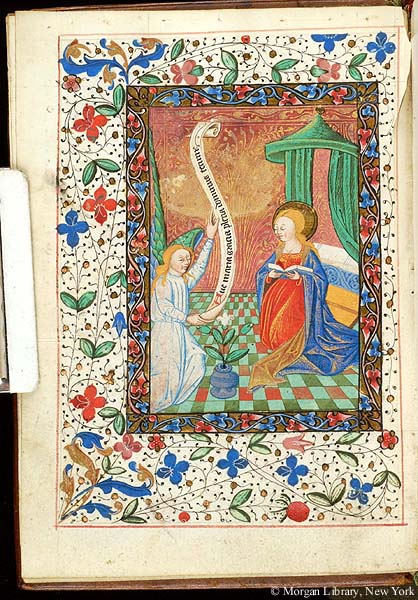 Aue maria gracia plena dominus tecum
© Morgan Library, New York